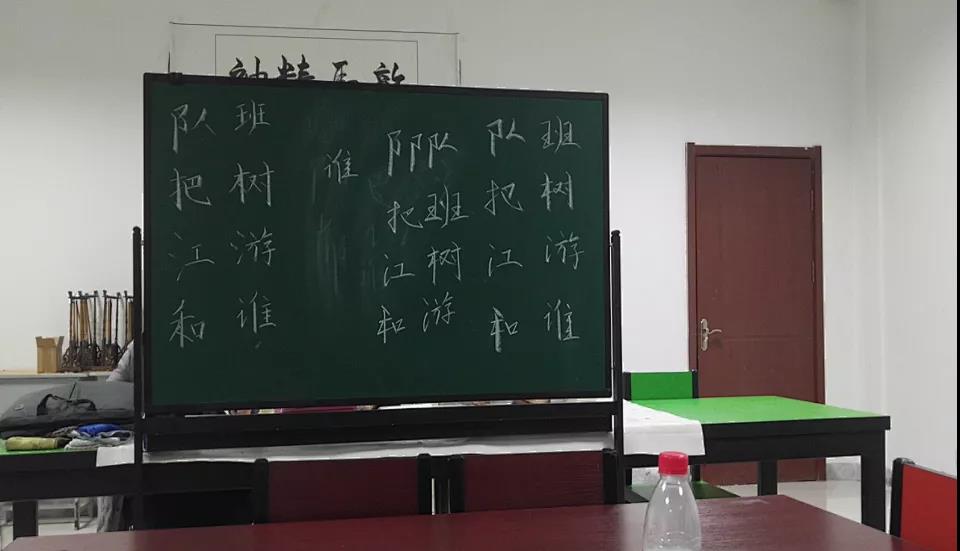 队 班
把 树
江 游
和 谁
谁
阝阝队
把 班
江 树
和 游
队 班
把 树
江 游
和 谁